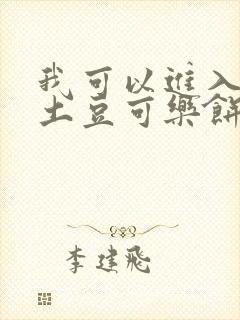 我可以進入
土豆可樂餅
李建飛